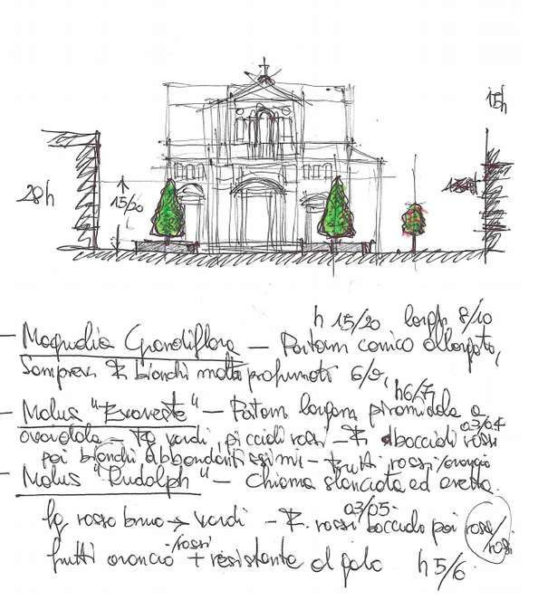 15h
28h
15/20
h 15/20 largh 8/10
– Magnolia Grandiflora – Portam conico allargato,
Semprev. F. bianchi molto profumati 6/9,
h6/7
– Malus "Evereste" – Portam largam piramidale a
03/04
ovoidale – fg verdi, piccioli rossi – F. boccioli rossi
poi bianchi abbondantissimi – frutti rossi/arancio
– Malus "Rudolph" – Chioma slanciata ed eretta.
03/05
fg rosso bruno → verdi – F. rossi bocciolo poi rosa/
frutti arancio /rossi + resistente al gelo h 5/6